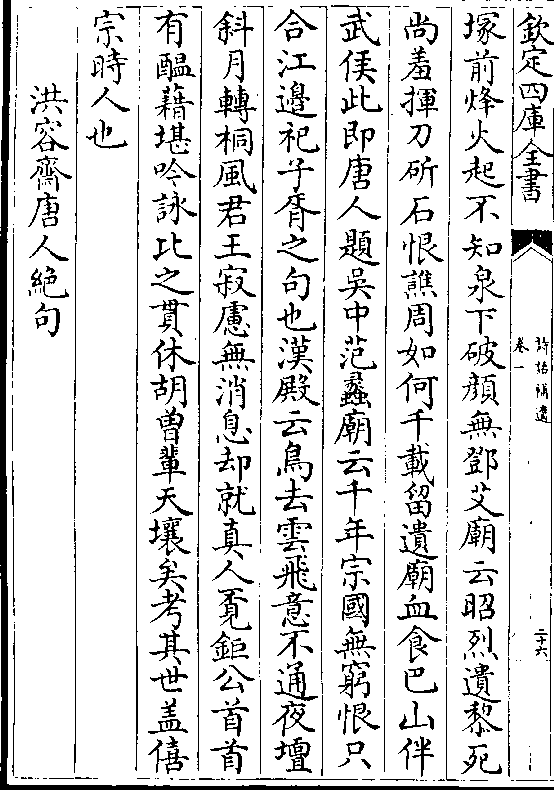 欽定四庫全書
詩話補遺
卷一
二十六
塚前烽火起不知泉下破顔無鄧艾廟云昭烈遺黎死
尚羞揮刀斫石恨譙周如何千載留遺廟血食巴山伴
武侯此即唐人題吳中范蠡廟云千年宗國無窮恨只
合江邊祀子胥之句也漢殿云鳥去雲飛意不通夜壇
斜月轉桐風君王寂慮無消息却就真人覔鉅公首首
有醖藉堪吟詠比之貫休胡曽輩天壤矣考其世盖僖
宗時人也
洪容齋唐人絶句